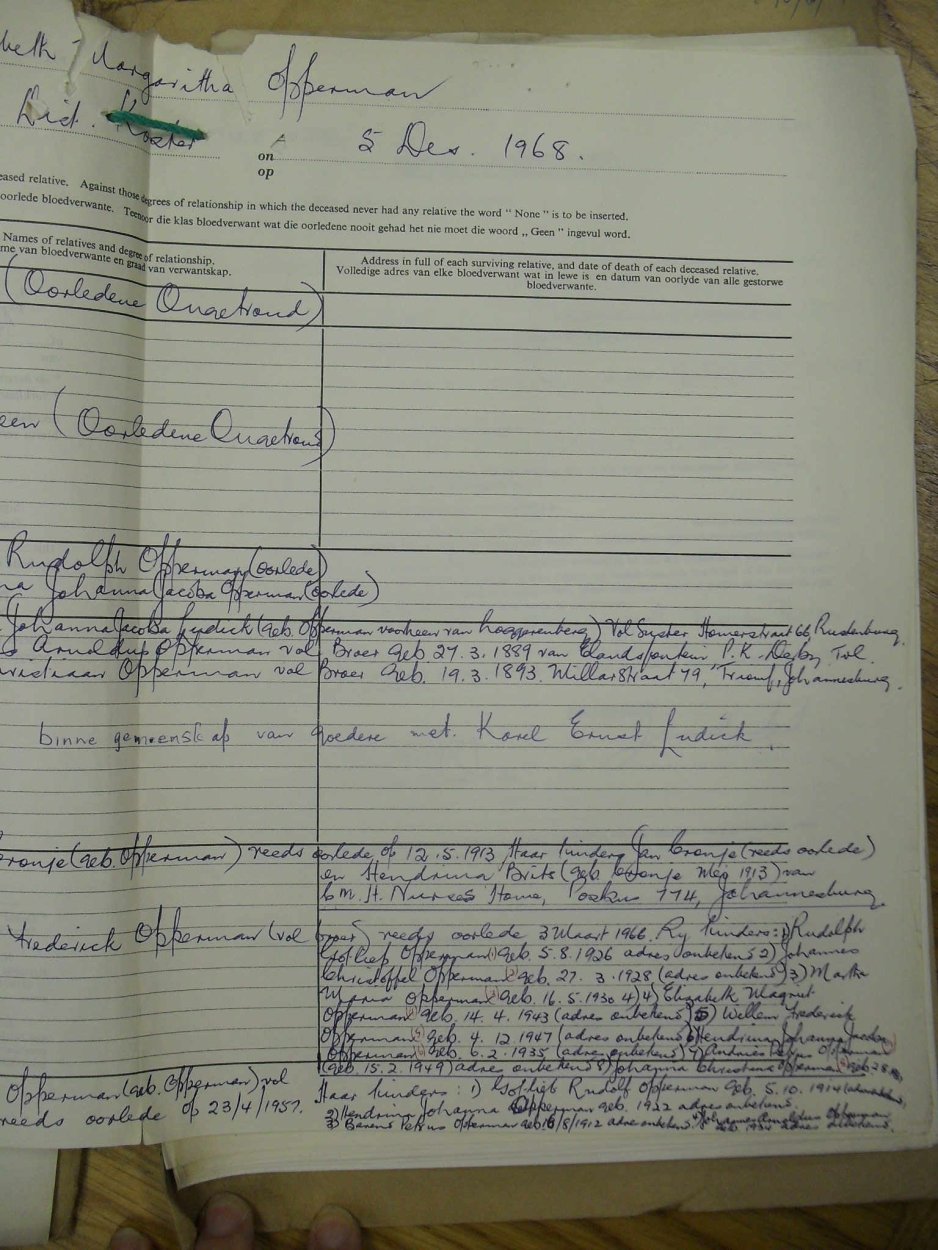 beth Margaritha Opperman
Dist. Koster
on
op
5 Des. 1968.
eased relative. Against those degrees of relationship in which the deceased never had any relative the word " None " is to be inserted.
oorlede bloedverwante. Teenoor die klas bloedverwant wat die oorledene nooit gehad het nie moet die woord „ Geen " ingevul word.
Names of relatives and degree of relationship.
me van bloedverwante en graad van verwantskap.
Address in full of each surviving relative, and date of death of each deceased relative.
Volledige adres van elke bloedverwant wat in lewe is en datum van oorlyde van alle gestorwe bloedverwante.
(Oorledene Ongetroud)
een (Oorledene Ongetroud)
Rudolph Opperman (oorlede)
na Johanna Jacoba Opperman (oorlede)
Johanna Jacoba Ludick (geb. Opperman voorheen van ) Vol Suster Homerstraat 66, Rustenburg
Opperman vol Broer geb. 27.3.1889 van Elandsfontein P.K. Derby, Tvl.
ristiaan Opperman vol Broer geb. 19.3.1893. 79, Triomf, Johannesburg.
binne gemeenskap van goedere met. Karel Ernst Ludick.
ronje (geb. Opperman) reeds oorlede op 12.5.1913 Haar kinders Jan Cronje (reeds oorlede)
en Hendrina Brits (geb. Cronje 1913) van
Nurses Home, Posbus 774, Johannesburg
Frederick Opperman (vol broer) reeds oorlede 3 Maart 1966. Sy kinders: 1) Rudolph
Gotlieb Opperman geb. 5.8.1926 adres onbekend 2) Johannes
Christoffel Opperman geb. 27.3.1928 (adres onbekend) 3) Martha
Maria Opperman geb. 16.5.1930 4) Elizabeth Magriet
Opperman geb. 14.4.1943 (adres onbekend) 5) Willem Frederick
Opperman geb. 4.12.1947 (adres onbekend) 6) Hendrina Johanna Jacoba
Opperman geb. 6.2.1935 (adres onbekend) 7) Andries Petrus Opperman
(geb. 15.2.1949) adres onbekend 8) Johanna Christina Opperman geb.
Opperman (geb. Opperman) vol
Haar kinders: 1) Gotlieb Rudolf Opperman geb. 5.10.1914
reeds oorlede op 23/4/1957.
2) Hendrina Johanna Opperman geb. 1922 adres onbekend.
3) Barend Petrus Opperman geb. 16/8/1912 adres onbekend.